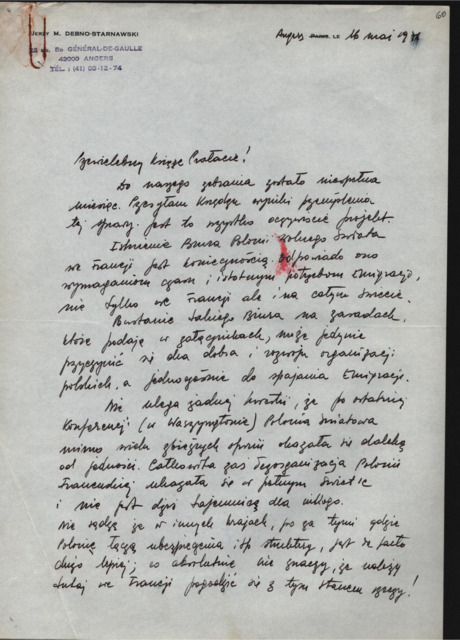 60
JERZY M. DEBNO-STARNAWSKI
Bd GÉNÉRAL-DE-GAULLE
49000 ANGERS
TÉL. : (41) 88-12-74
Angers PARIS, LE 16 mai 19
Przewielebny Księże Prałacie!
Do naszego zebrania zostało niespełna
miesiąc. Przesyłam Księdzu wyniki przemyślenia
tej sprawy. Jest to wszystko oczywiście projekt.
Istnienie Biura Polonii Wolnego Świata
we Francji jest koniecznością. Odpowiada ono
wymaganiom czasu i istotnym potrzebom Emigracji,
nie tylko we Francji ale i na całym świecie.
Powstanie takiego Biura na zasadach,
które podaję w załącznikach, może jedynie
przyczynić się dla dobra i rozwoju organizacji
polskich, a jednocześnie do spajania Emigracji.
Nie ulega żadnej kwestii, że po ostatniej
Konferencji (w Waszyngtonie) Polonia Światowa
mimo wielu zbieżnych opinii okazała się daleką
od jedności. Całkowita zaś dezorganizacja Polonii
Francuskiej ukazała się w pełnym świetle
i nie jest dziś tajemnicą dla nikogo.
Nie sądzę że w innych krajach, po za tymi gdzie
Polonię łączą ubezpieczenia itp struktury, jest de facto
dużo lepiej; co absolutnie nie znaczy, że należy
tutaj we Francji pogodzić się z tym stanem rzeczy!